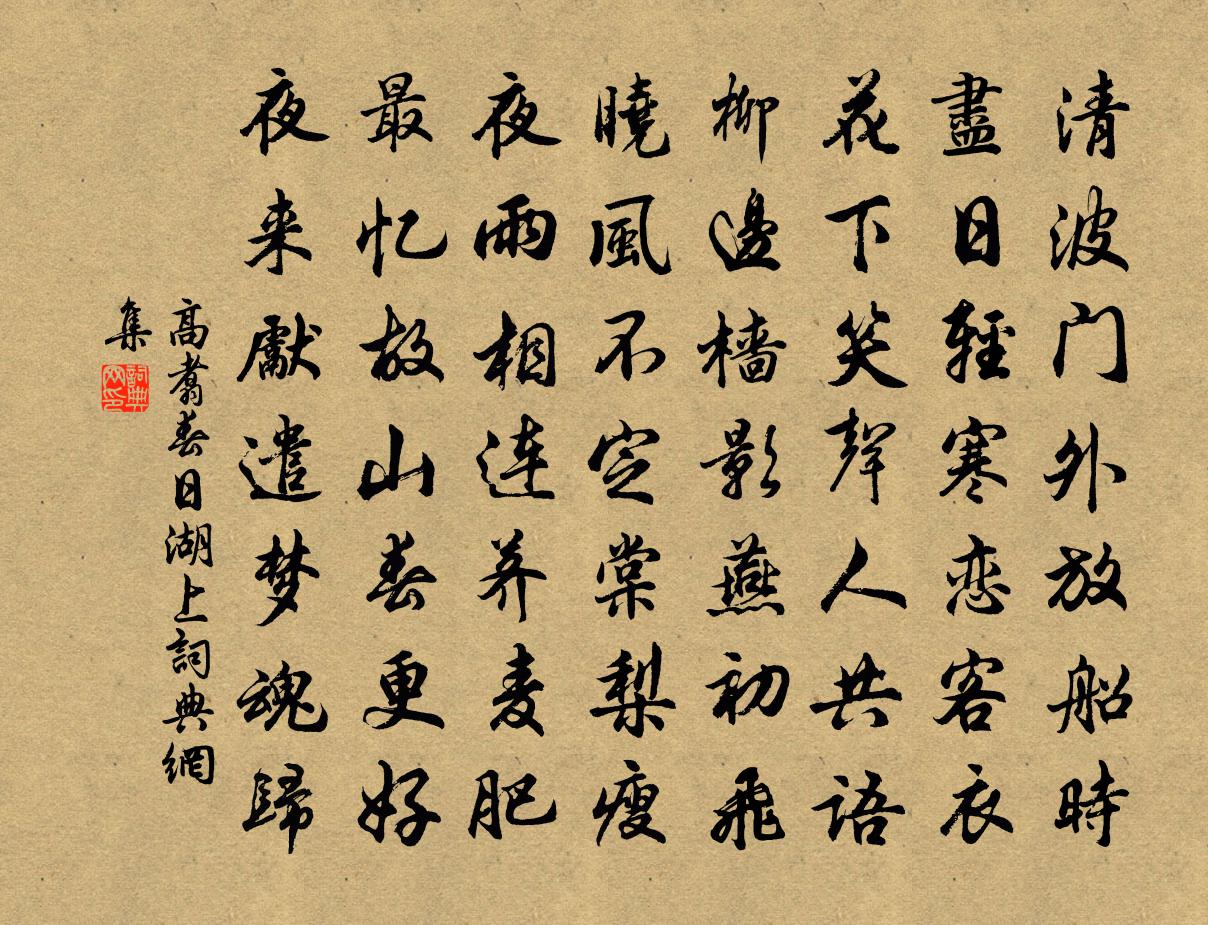 清波门外放船時
盡日輕寒恋客衣
花下笑聲人共語
柳邊檣影燕初飛
曉風不定棠梨瘦
夜雨相連荞麦肥
最忆故山春更好
夜来獻遣梦魂歸
高翥春日湖上詞典網
集
詞典网印